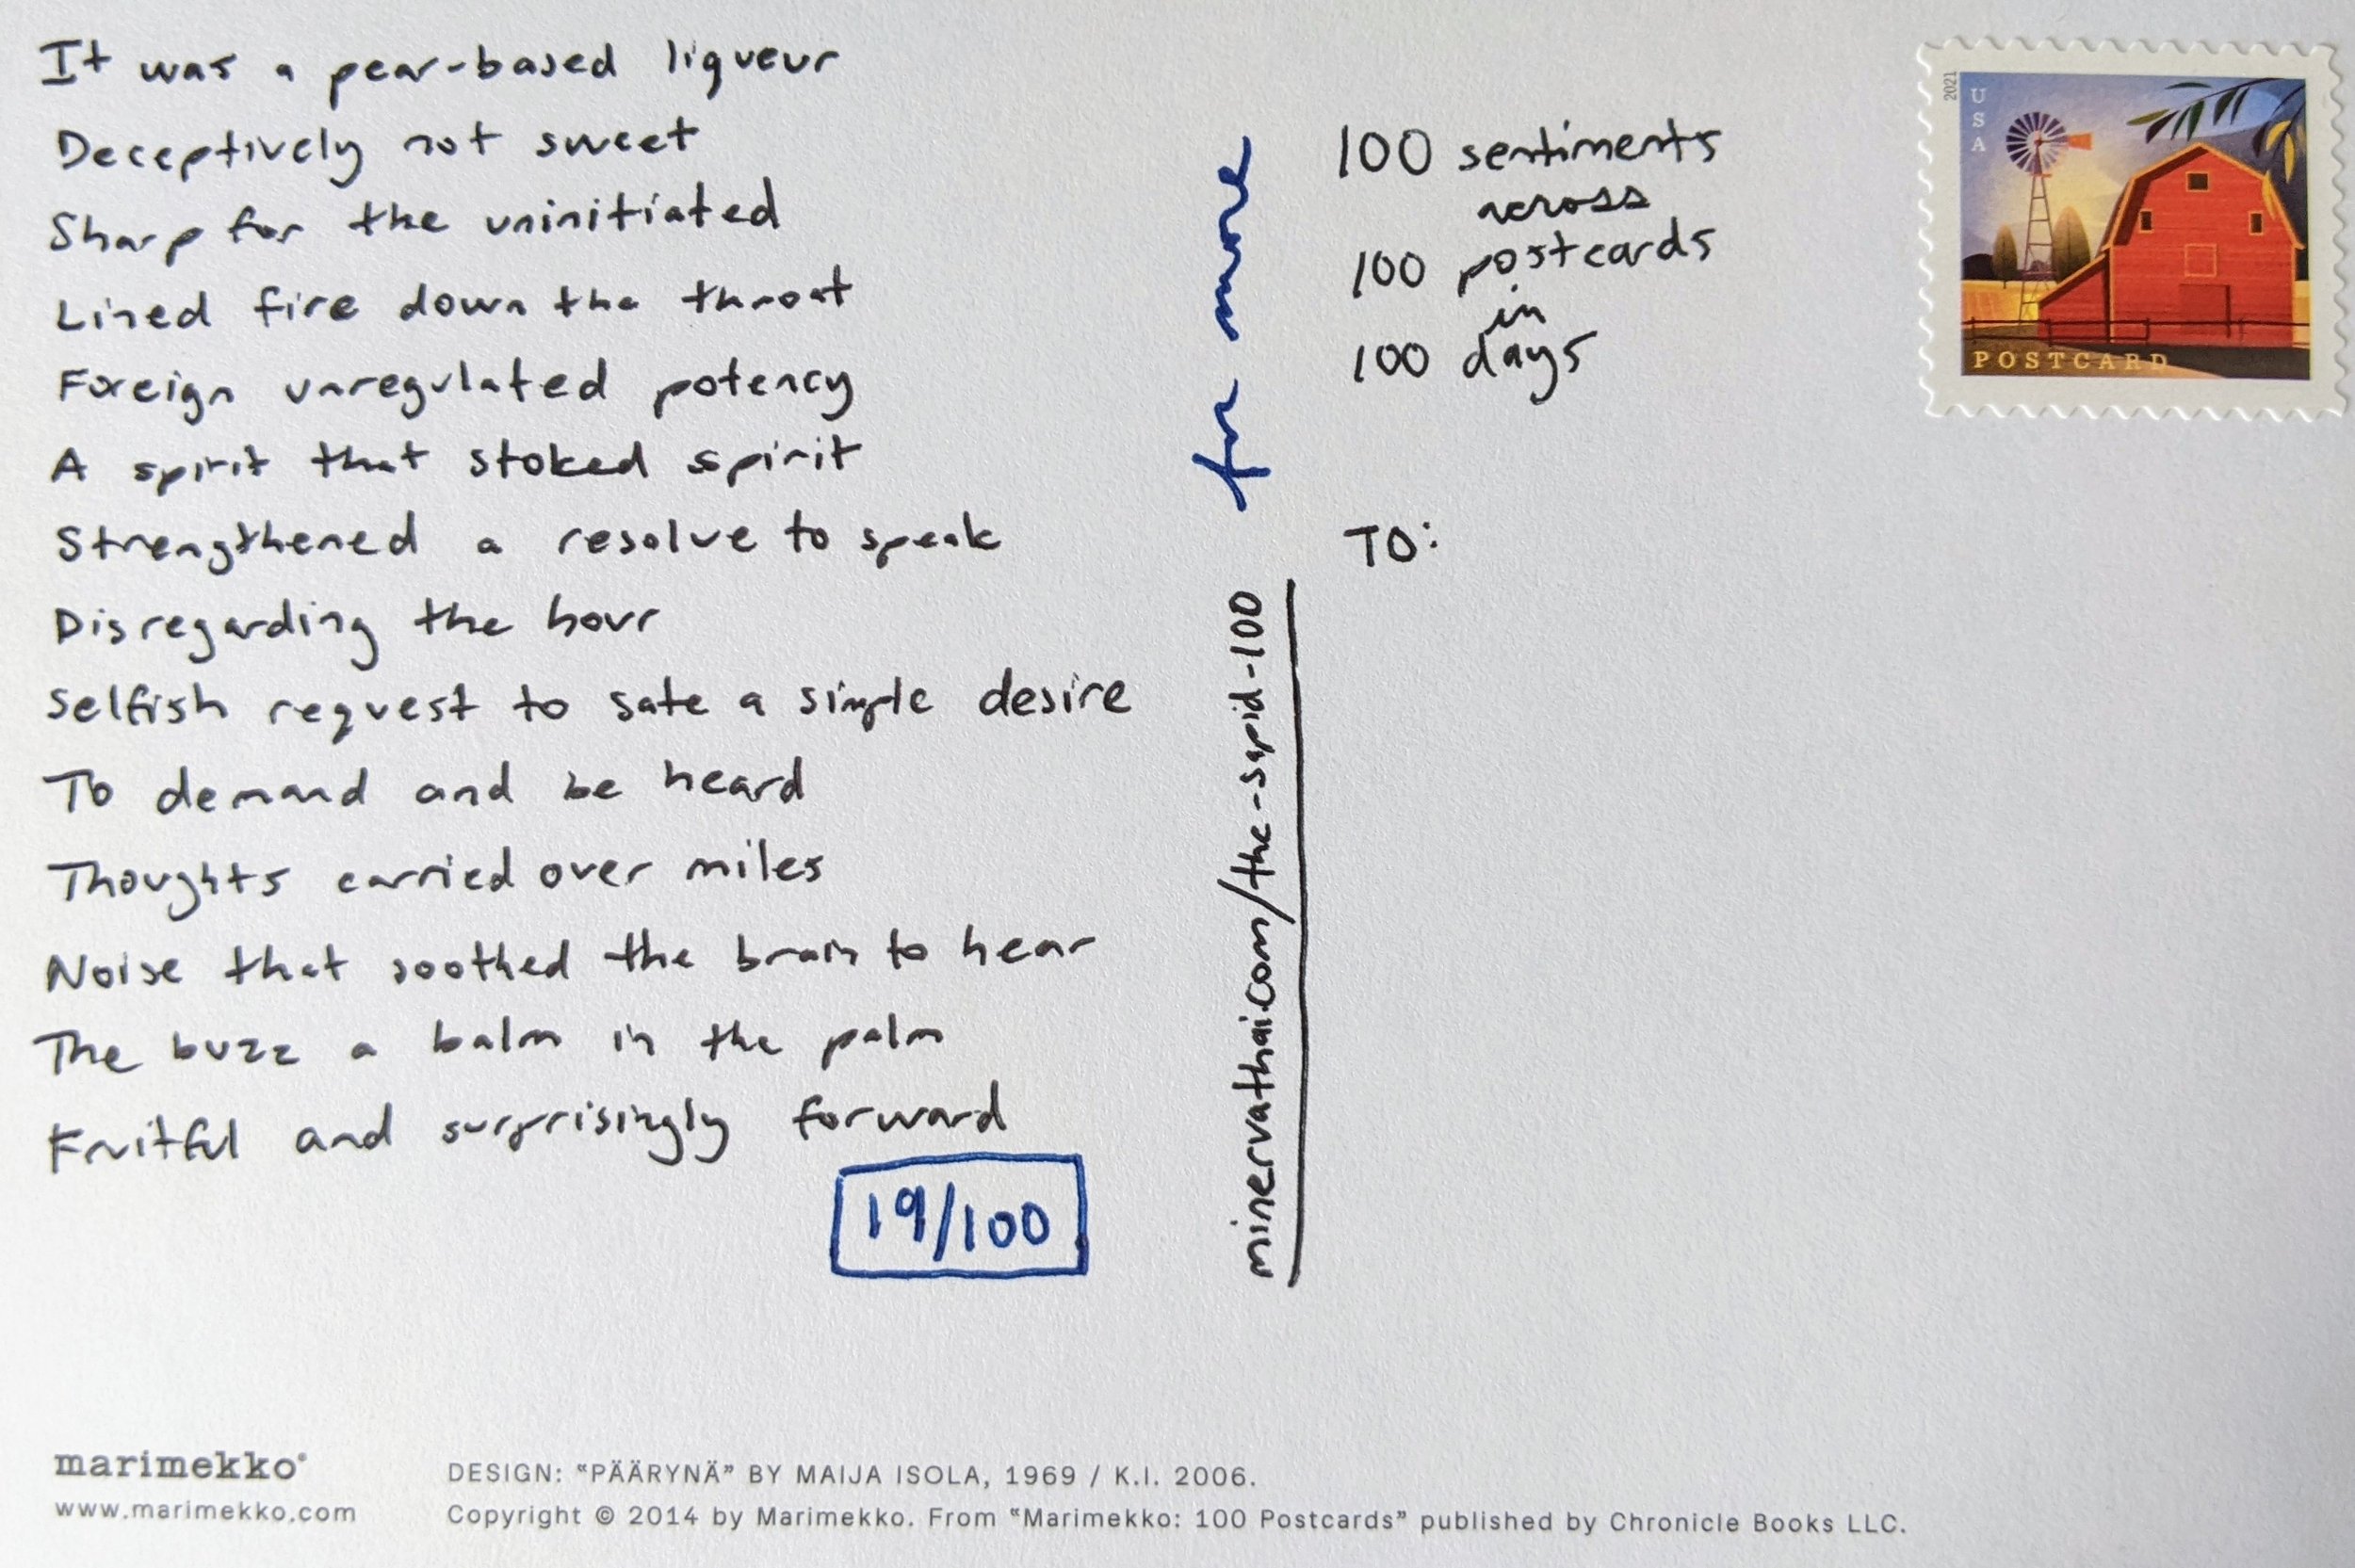 It was a pear-based liqueur
Deceptively not sweet
Sharp for the uninitiated
Lined fire down the throat
Foreign unregulated potency
A spirit that stoked spirit
Strengthened a resolve to speak
Disregarding the hour
Selfish request to sate a simple desire
To demand and be heard
Thoughts carried over miles
Noise that soothed the brain to hear
The buzz a balm in the palm
Fruitful and surprisingly forward
19/100
for more
minervathai.com/the-sapid-100
100 sentiments
across
100 postcards
in
100 days
TO:
2021
USA
POSTCARD
marimekko®
www.marimekko.com
DESIGN: “PÄÄRYNÄ” BY MAIJA ISOLA, 1969 / K.I. 2006.
Copyright © 2014 by Marimekko. From “Marimekko: 100 Postcards” published by Chronicle Books LLC.